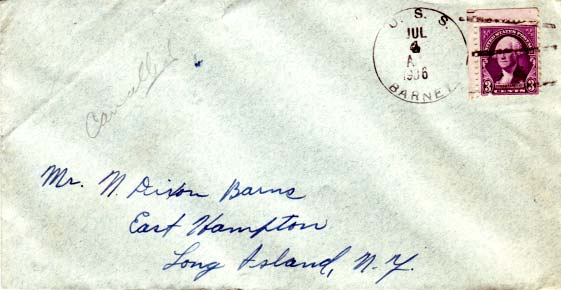 U. S. S.
JUL
4
A
1936
BARNEY
UNITED STATES POSTAGE
3 3
CENTS
Cancelled
Mr. N. Dixon Barns
East Hampton
Long Island, N.Y.